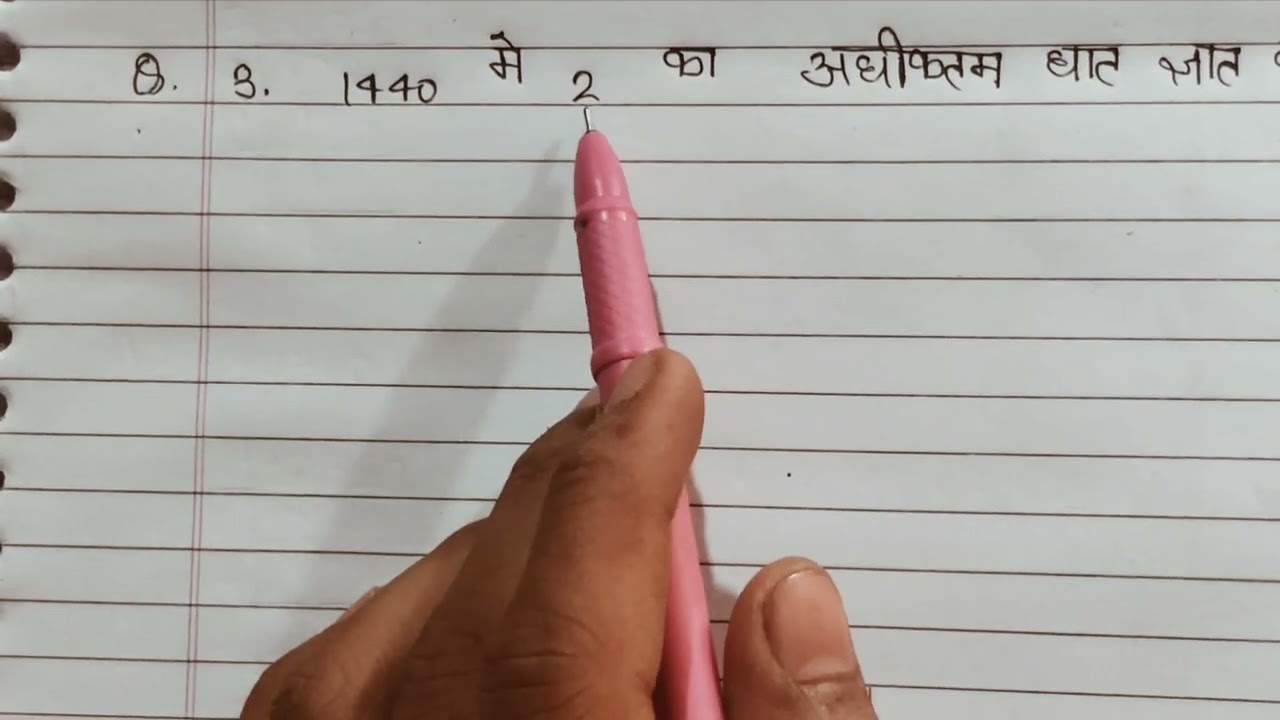 Q. 3. 1440 मे 2 का अधीकतम घात ज्ञात